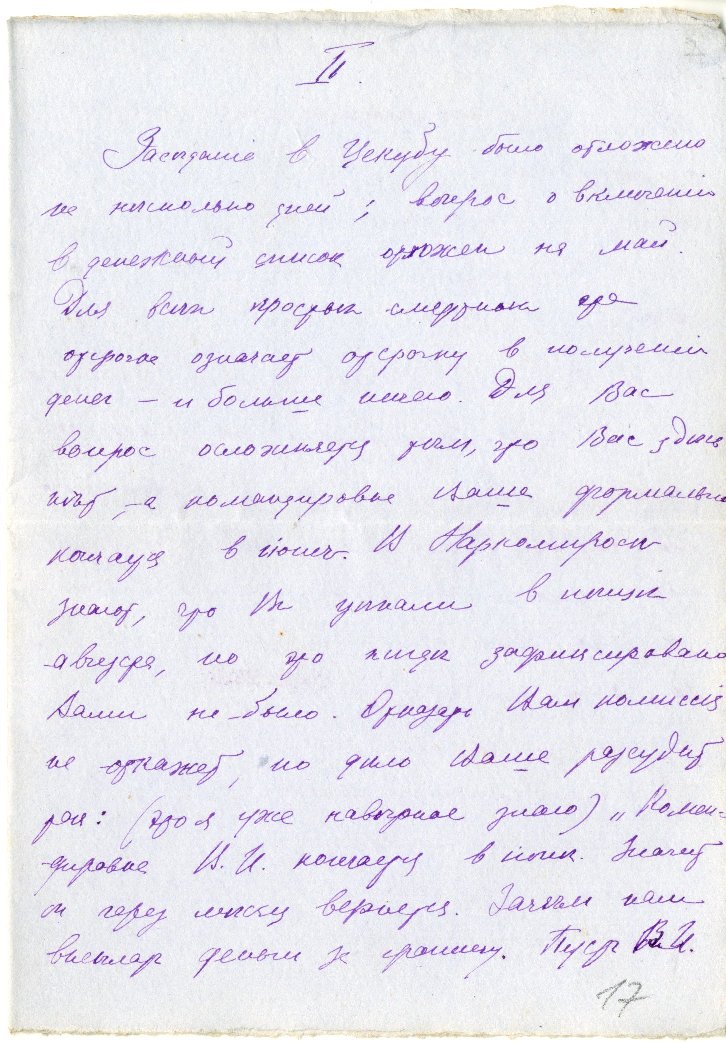 II.
Засѣданіе в Цекубу было отложено
на нѣсколько дней; вопрос о включеніи
в денежный список отложен на май.
Для всѣх простых смертных эта
отсрочка означает отсрочку в полученіи
денег – и больше ничего. Для Вас
вопрос осложняется тѣм, что Вас здѣсь
нѣт, а командировка Ваша формально
кончается в іюнѣ. В Наркомпросѣ
знают, что Вы уѣхали в концѣ
августа, но это нигдѣ зафиксировано
Вами не было. Отказать Вам комиссія
не откажет, но дѣло Ваше разсудит
так: (это я уже навѣрное знаю) „Коман-
дировка В.И. кончается в іюнѣ. Значит
он через мѣсяц вернется. Зачѣм нам
высылать деньги за границу. Пусть В.И.
17